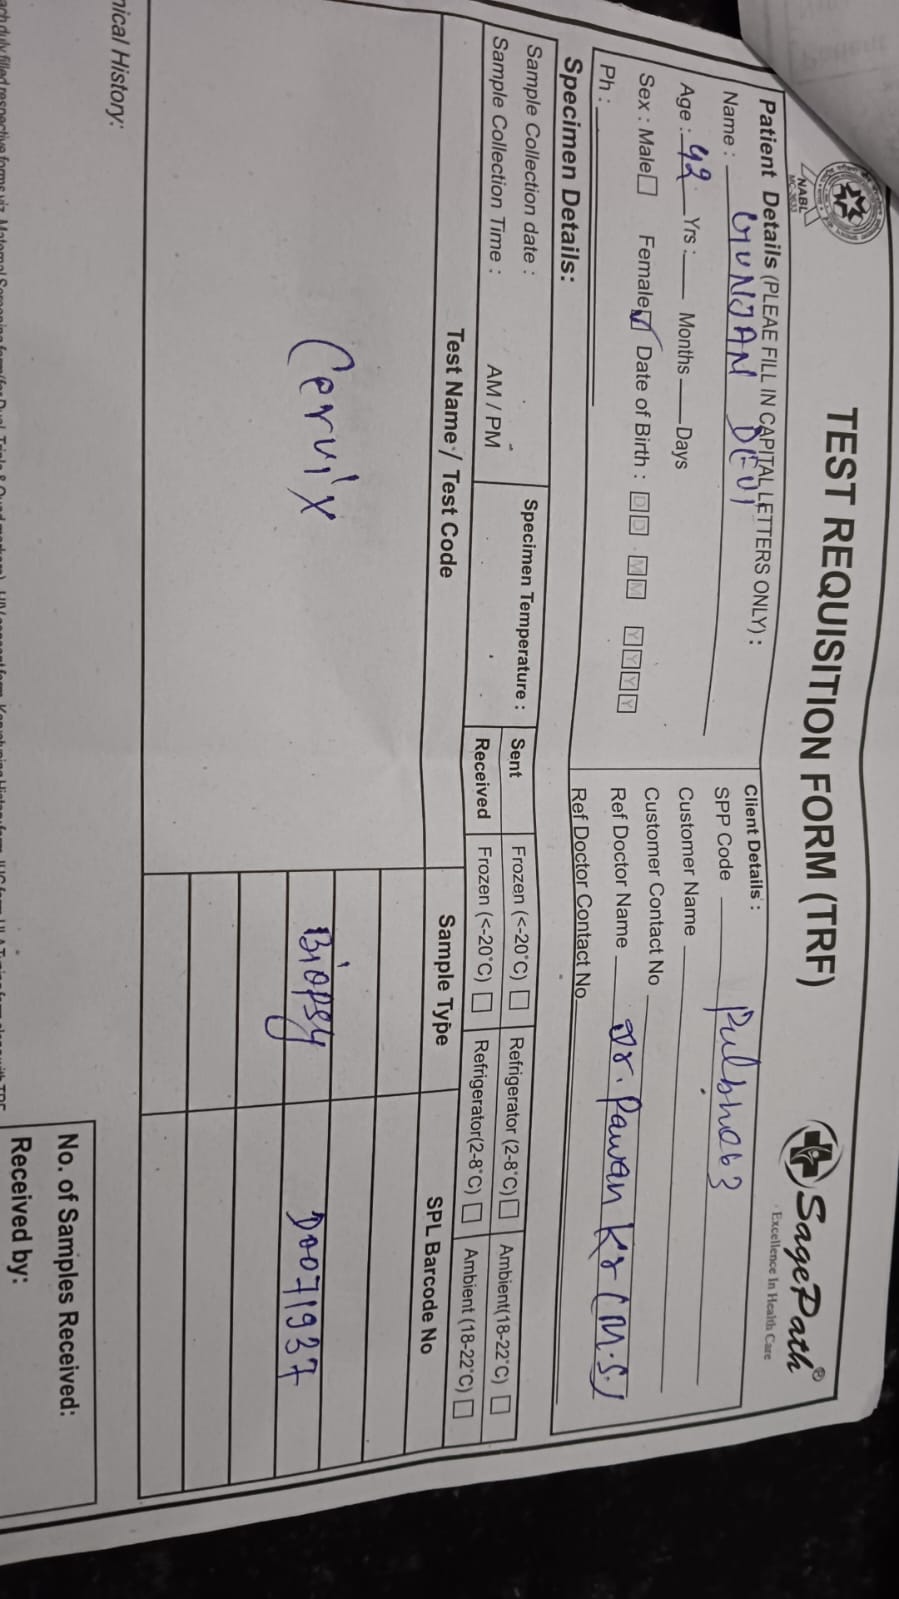 TEST REQUISITION FORM (TRF)
SagePath®
Excellence In Health Care
NABL
Patient Details (PLEAE FILL IN CAPITAL LETTERS ONLY) :
Name : GUNJAN DEVI
Age : 42 Yrs : Months Days
Sex : Male Female Date of Birth : D D M M Y Y Y Y
Ph :
Client Details :
SPP Code
Customer Name
Customer Contact No
Ref Doctor Name Dr. Pawan Kr (M.S)
Ref Doctor Contact No
Specimen Details:
Sample Collection date :
Sample Collection Time : AM / PM
Specimen Temperature :
Sent Frozen (<-20°C) Refrigerator (2-8°C) Ambient(18-22°C)
Received Frozen (<-20°C) Refrigerator(2-8°C) Ambient (18-22°C)
Test Name / Test Code Sample Type SPL Barcode No
Cervix Biopsy D0071937
nical History:
No. of Samples Received:
Received by: